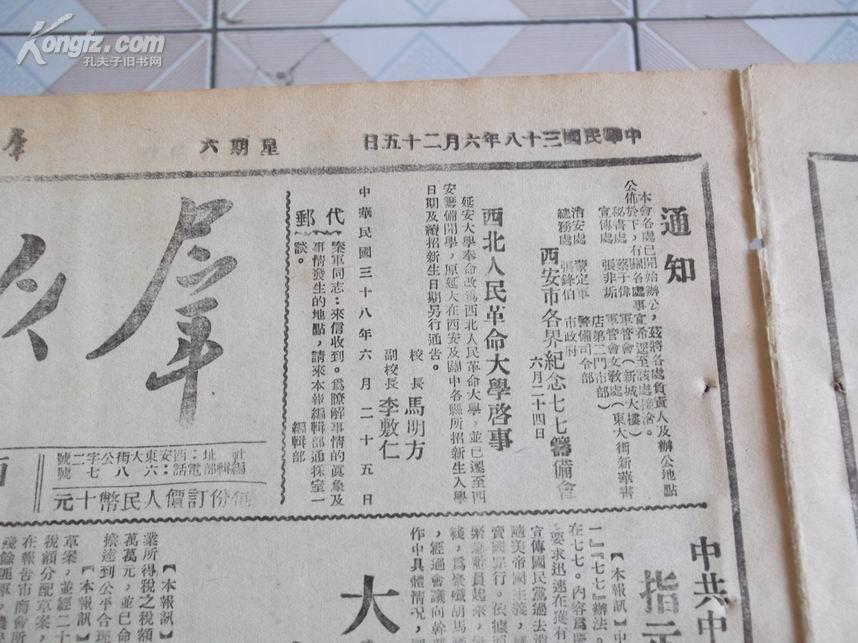 Kongfz.com
孔夫子旧书网
日五十二月六年八十三國民華中
六期星
羣
通知
本會各處已開始辦公，茲將各處負責人及辦公地點
公佈於下，有關各處事宜希逕至該處接洽。
秘書處　蔡子偉　軍管會（新城大樓）
宣傳處　張非垢　軍管會文教處（東大街新華書
店第二門市部）
治安處　蒙定軍　警備司令部
總務處　張鋒伯　市政府
西安市各界紀念七七籌備會
六月二十四日
西北人民革命大學啓事
延安大學奉命改爲西北人民革命大學，並已遷至西
安籌備開學，原延大在西安及關中各縣所招新生入學
日期及續招新生日期另行通告。
校　長　馬明方
副校長　李敷仁
中華民國三十八年六月二十五日
代郵
秦軍同志：來信收到。爲瞭解事情的眞象及
事情發生的地點，請來本報編輯部通採室一
談。
編輯部
羣
社址：西安東大街公字二號
編輯部電話：六八七號
每份訂價人民幣十元
中共中
指示
【本報訊】中
一『七七』辦法。
在七七。內容爲慶
要求迅速在獲有
宣傳國民黨過去消
隨美帝國主義，
賣國罪行。依據
緊急動員起來，
錢，爲殲滅胡馬
，經過會議向幹
作中具體情況，
大
【本報訊】
業所得稅之稅額
萬萬元，並已命
擦達到公平合理
【本報訊】
草案，並經二十
稅額分配草案，
在報告市商會所
殘餘匪軍，